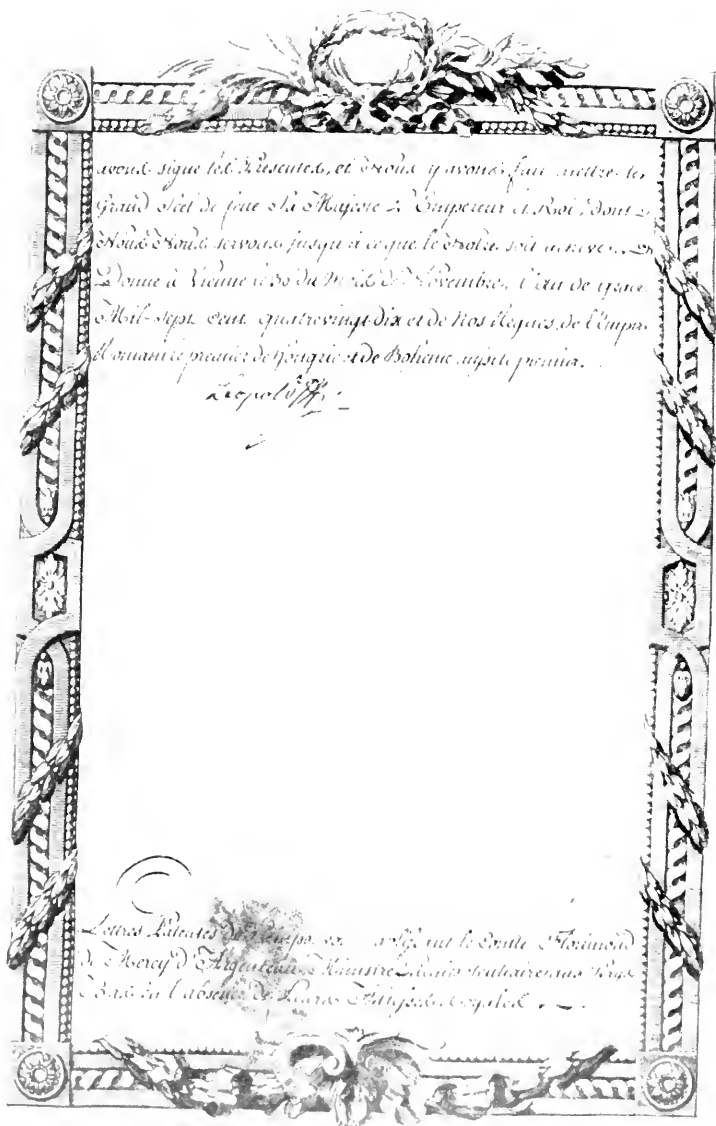 avons signé les Presentes, et Nous y avons fait mettre le
Grand Scel de feue Sa Majesté L'Empereur et Roi, dont
Nous Nous servons jusqu'à ce que le Nôtre soit achevé.
Donné à Vienne le 30 du Mois de Novembre, l'an de grace
Mil-sept Cent quatrevingt-dix et de Nos Regnes, de l'Empire
Romain le premier de Hongrie et de Bohême aussi le premier.
Léopold
Lettres Patentes de l'Empereur le Comte Florimond
de Mercy d'Argenteau Ministre Plenipotentiaire aux Pays
Bas en l'absence de Leurs Altesses Royales